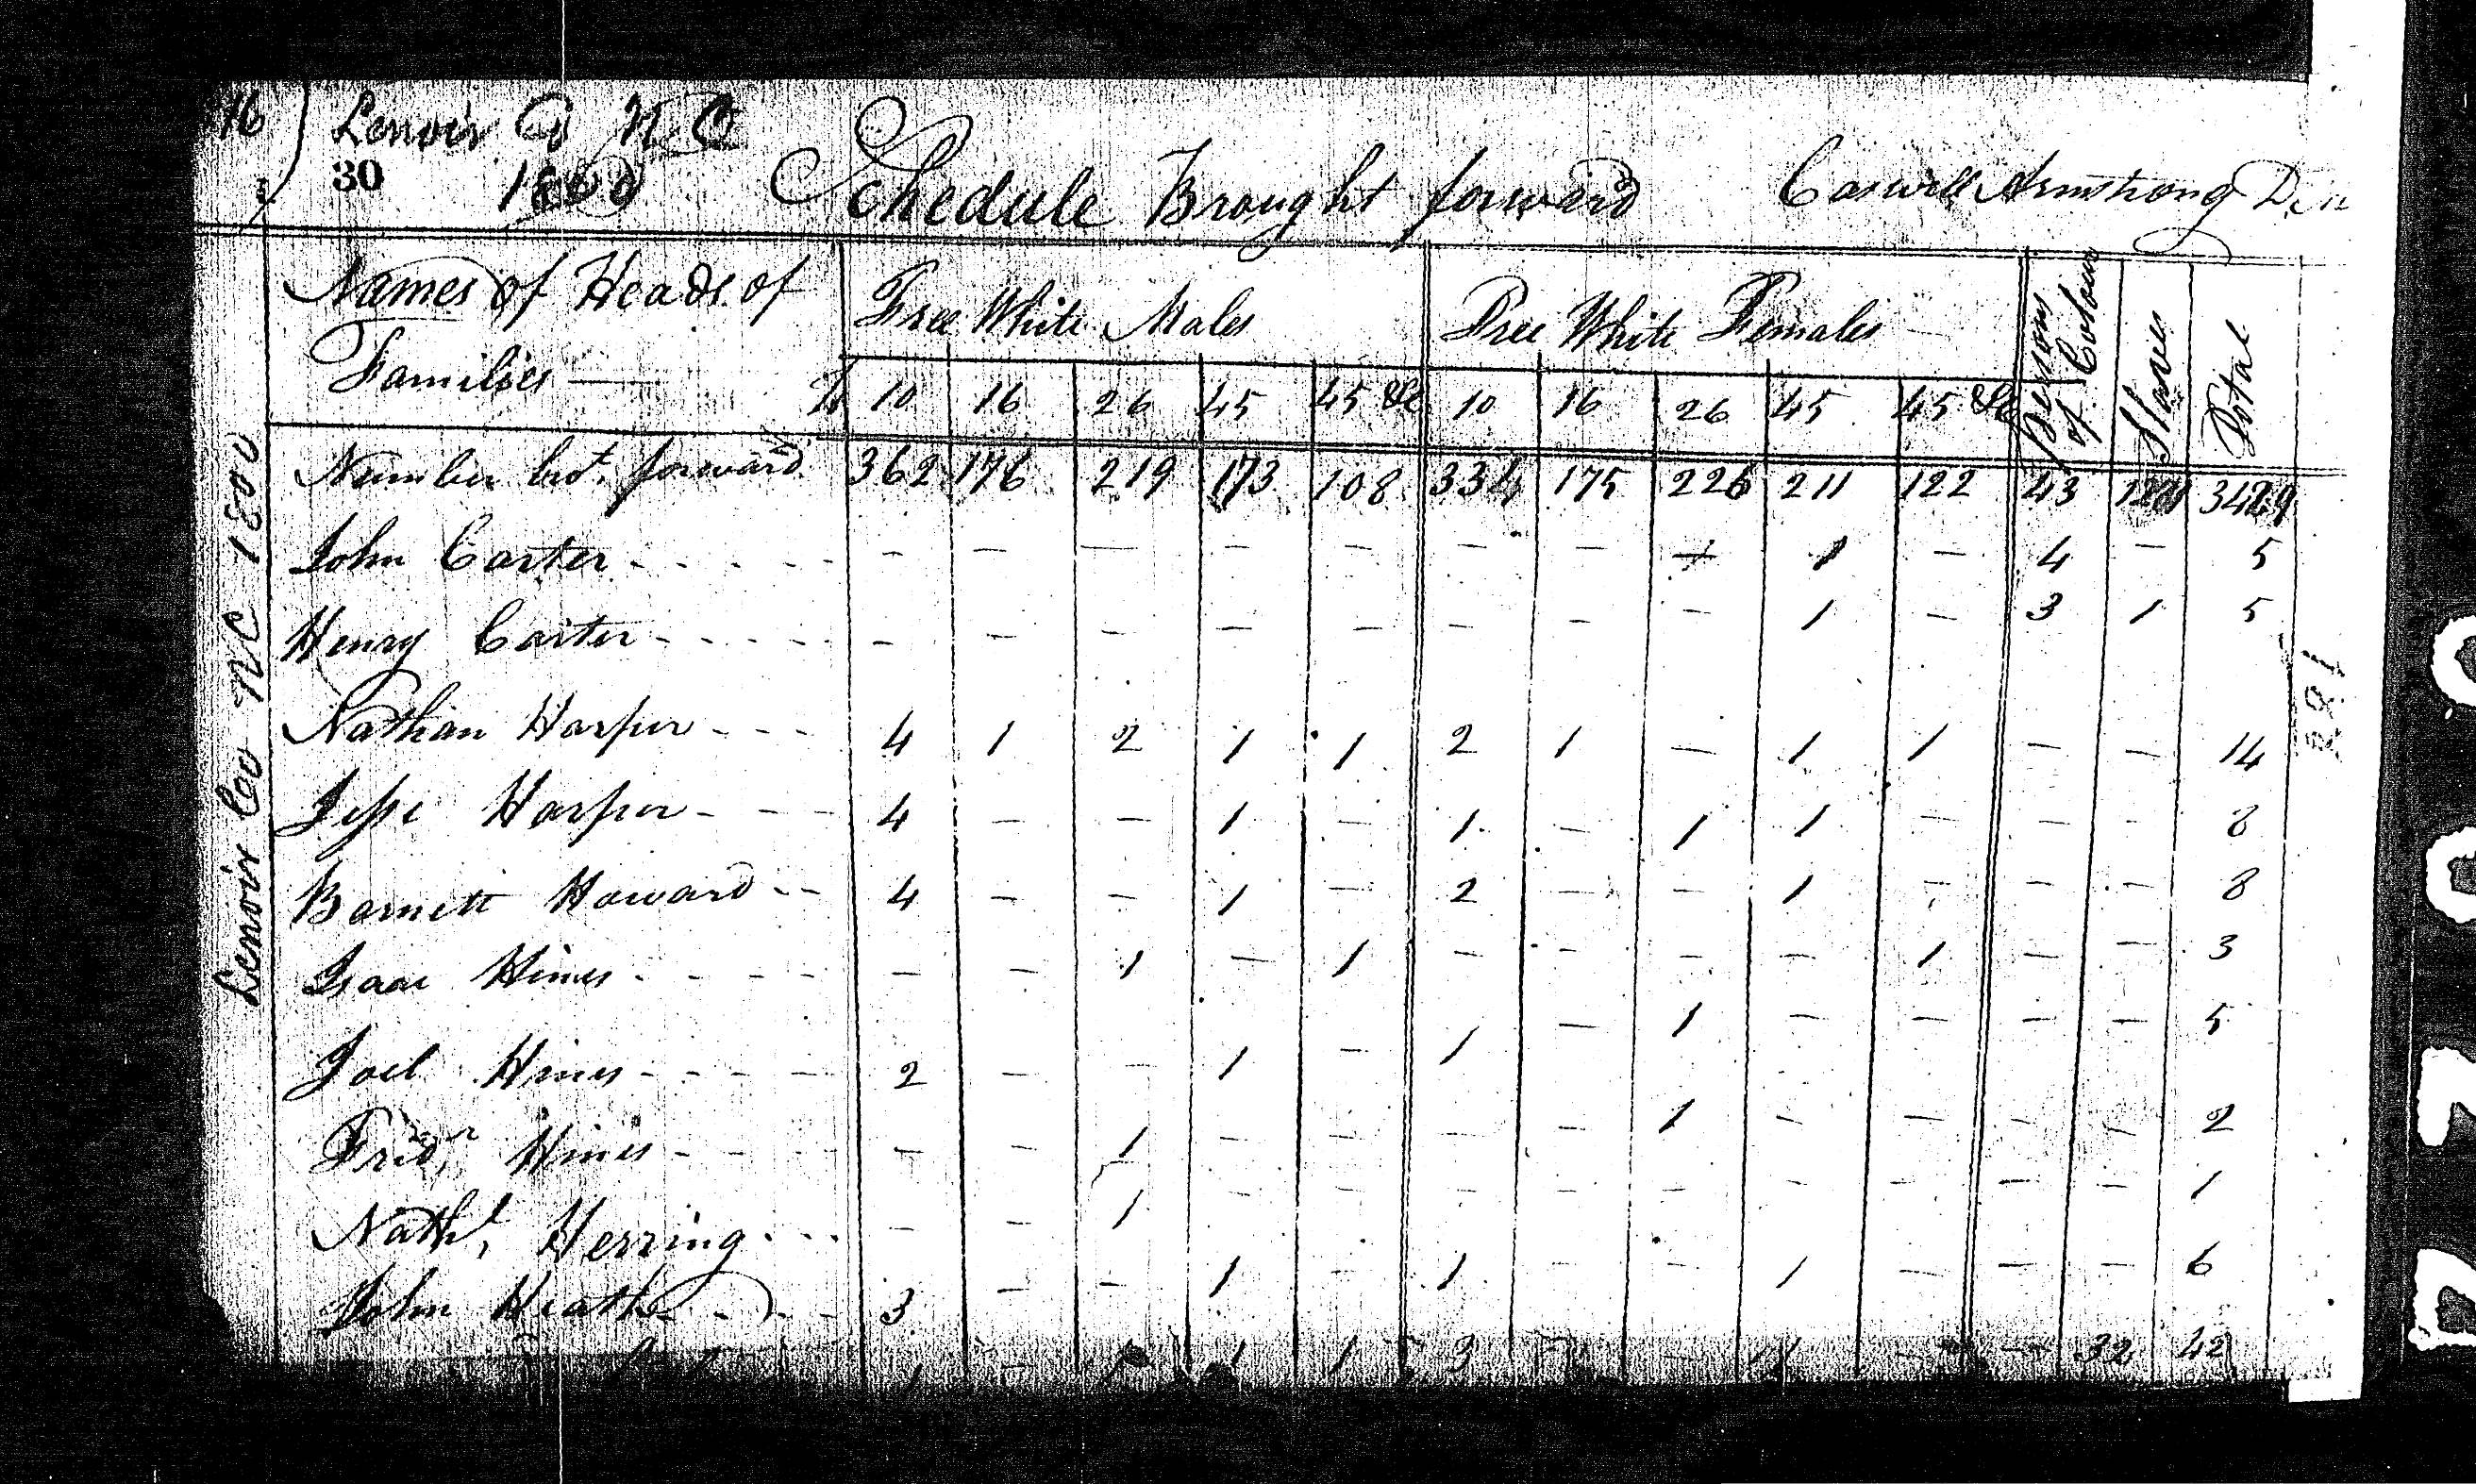 16
Lenoir Co N C
30
1800
Schedule Brought forward Caswell Armstrong
Names of Heads of
Families —
Free White Males
Free White Females
Persons of Colour
Slaves
Total
To 10 16 26 45 45 &c 10 16 26 45 45 &c
Number brot. forward 362 176 219 173 108 334 175 226 211 122 43
John Carter - - - - - - — — — — — — 1 — 4 — 5
Henry Carter - - - - - - — — — — — — — 1 — 3 1 5
Nathan Harper - - - 4 1 2 1 1 2 1 — 1 1 — — 14
Jesse Harper - - - 4 — — 1 — 1 — 1 1 — — - 8
Barnett Howard - - 4 — — 1 — 2 — — 1 — — — 8
Isaac Hines - - - - — — 1 — 1 — - — — 1 — — 3
Joel Hines - - - - 2 — — 1 — 1 — 1 — — — — 5
Fred. Hines - - - - — — 1 — — — — 1 — — — — 2
Nathl, Herring - - - — — 1 — — — — — — — — — 1
John Heath - - - 3 — — 1 — 1 — — 1 — — — 6
32 42
Lenoir Co NC 1800
281